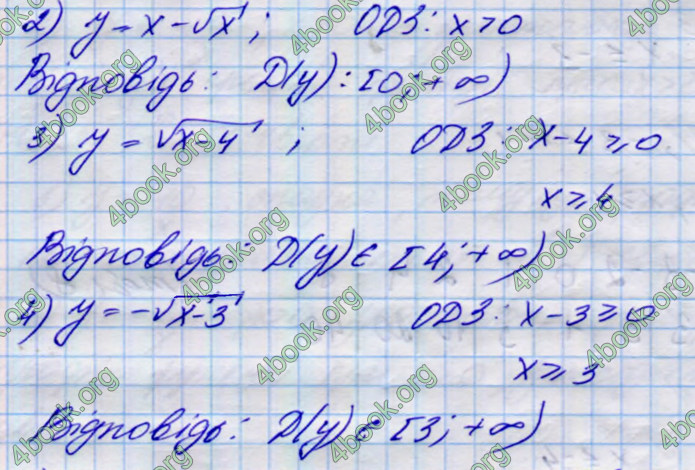 2) y = x - √x ; ОДЗ: x > 0
Відповідь: D(y): [0; + ∞)
3) y = √x-4 ; ОДЗ: x - 4 ≥ 0
x ≥ 4
Відповідь: D(y) ∈ [4; +∞)
4) y = -√x-3 ОДЗ: x - 3 ≥ 0
x ≥ 3
Відповідь: D(y) ∈ [3; +∞)
4book.org